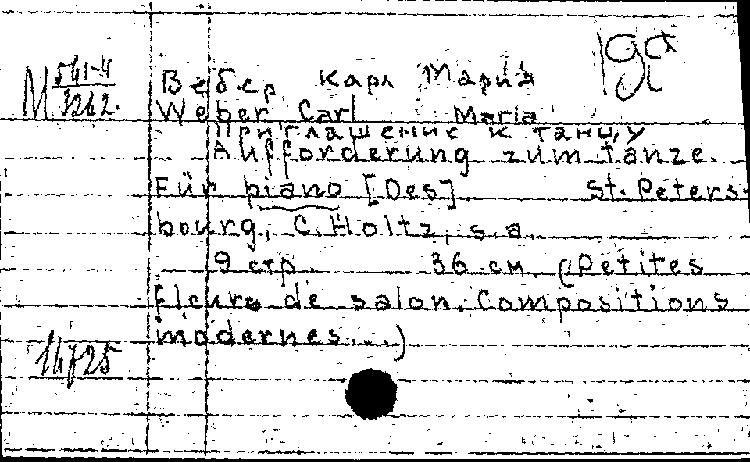 М 541-4
3262.
Вебер Карл Мария
Weber Carl Maria
Приглашение к танцу
Aufforderung zum Tanze.
Für piano [Des] St. Peters-
bourg, C. Holtz, s.a.
9 стр. 36 см. (Petites
fleurs de salon. Compositions
modernes...)
14725